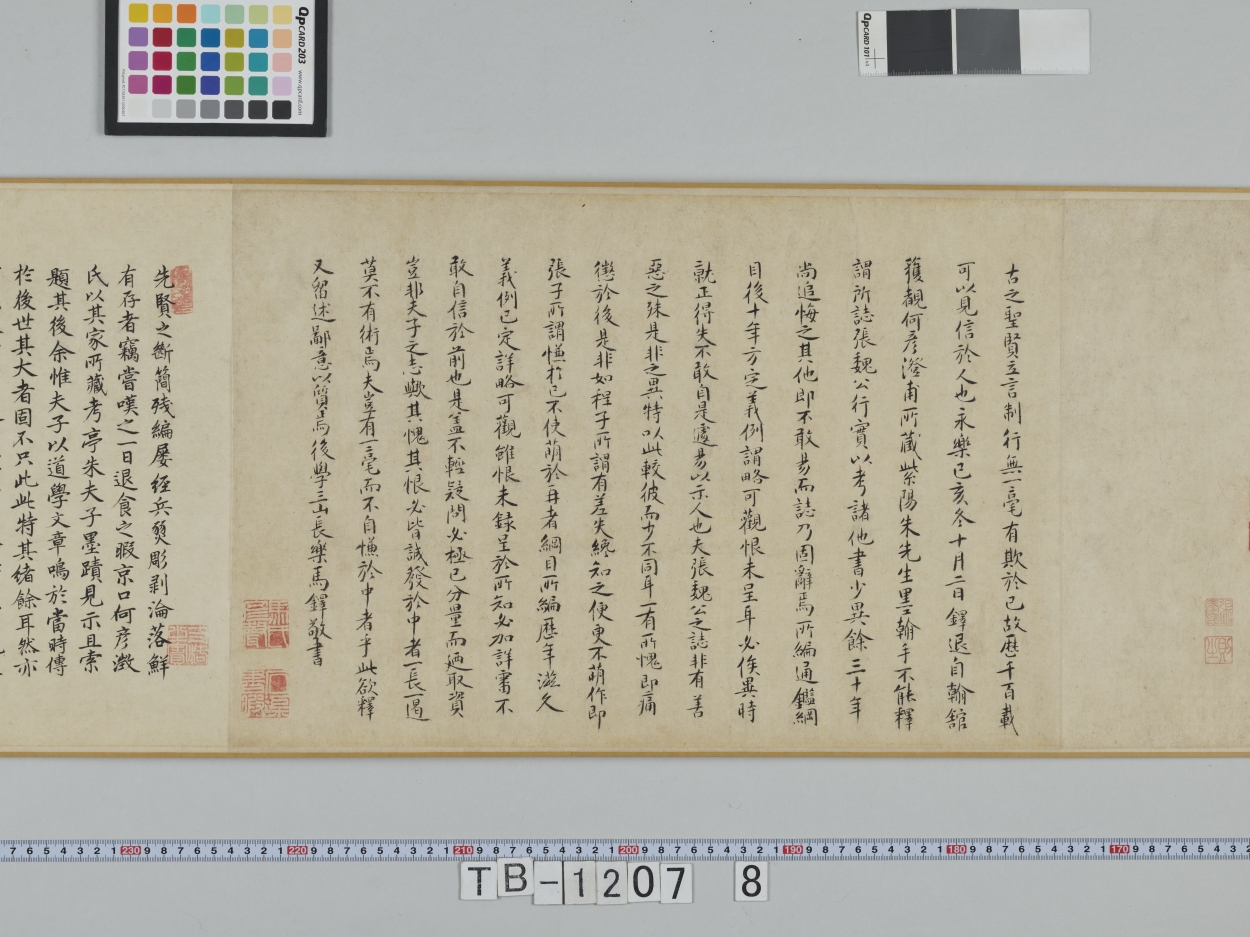 古之聖賢立言制行無一毫有欺於己故歷千百載
可以見信於人也永樂己亥冬十月二日鐸退自翰館
獲觀何彦澄甫所藏紫陽朱先生墨翰手不能釋
謂所誌張魏公行實以考諸他書少異餘三十年
尚追悔之其他即不敢易而誌乃固辭焉所編通鑑綱
目後十年方定義例謂略可觀恨未呈耳必俟異時
就正得失不敢自是遽易以示人也夫張魏公之誌非有善
惡之殊是非之異特以此較彼而少不同耳一有所愧即痛
懲於後是非如程子所謂有差失纔知之便更不萌作即
張子所謂慊於己不使萌於再者綱目所編歷年滋久
義例已定詳略可觀雖恨未録呈於所知必加詳審不
敢自信於前也是蓋不輕疑問必極己分量而廼取資
豈非夫子之志歟其愧其恨必皆誠發於中者一長一遏
莫不有術焉夫豈有一毫而不自慊於中者乎此欲釋
又留述鄙意以質焉後學三山長樂馬鐸敬書
先賢之斷簡殘編屡經兵燹彫剥淪落鮮
有存者竊嘗嘆之一日退食之暇京口何彦澂
氏以其家所藏考亭朱夫子墨蹟見示且索
題其後余惟夫子以道學文章鳴於當時傳
於後世其大者固不只此此特其緒餘耳然亦
QpCARD 203
www.qpcard.com
QpCARD 101
7 6 5 4 3 2 1 230 9 8 7 6 5 4 3 2 1 220 9 8 7 6 5 4 3 2 1 210 9 8 7 6 5 4 3 2 1 200 9 8 7 6 5 4 3 2 1 190 9 8 7 6 5 4 3 2 1 180 9 8 7 6 5 4 3 2 1 170 9 8 7 6 5 4 3 2
TB-1207 8